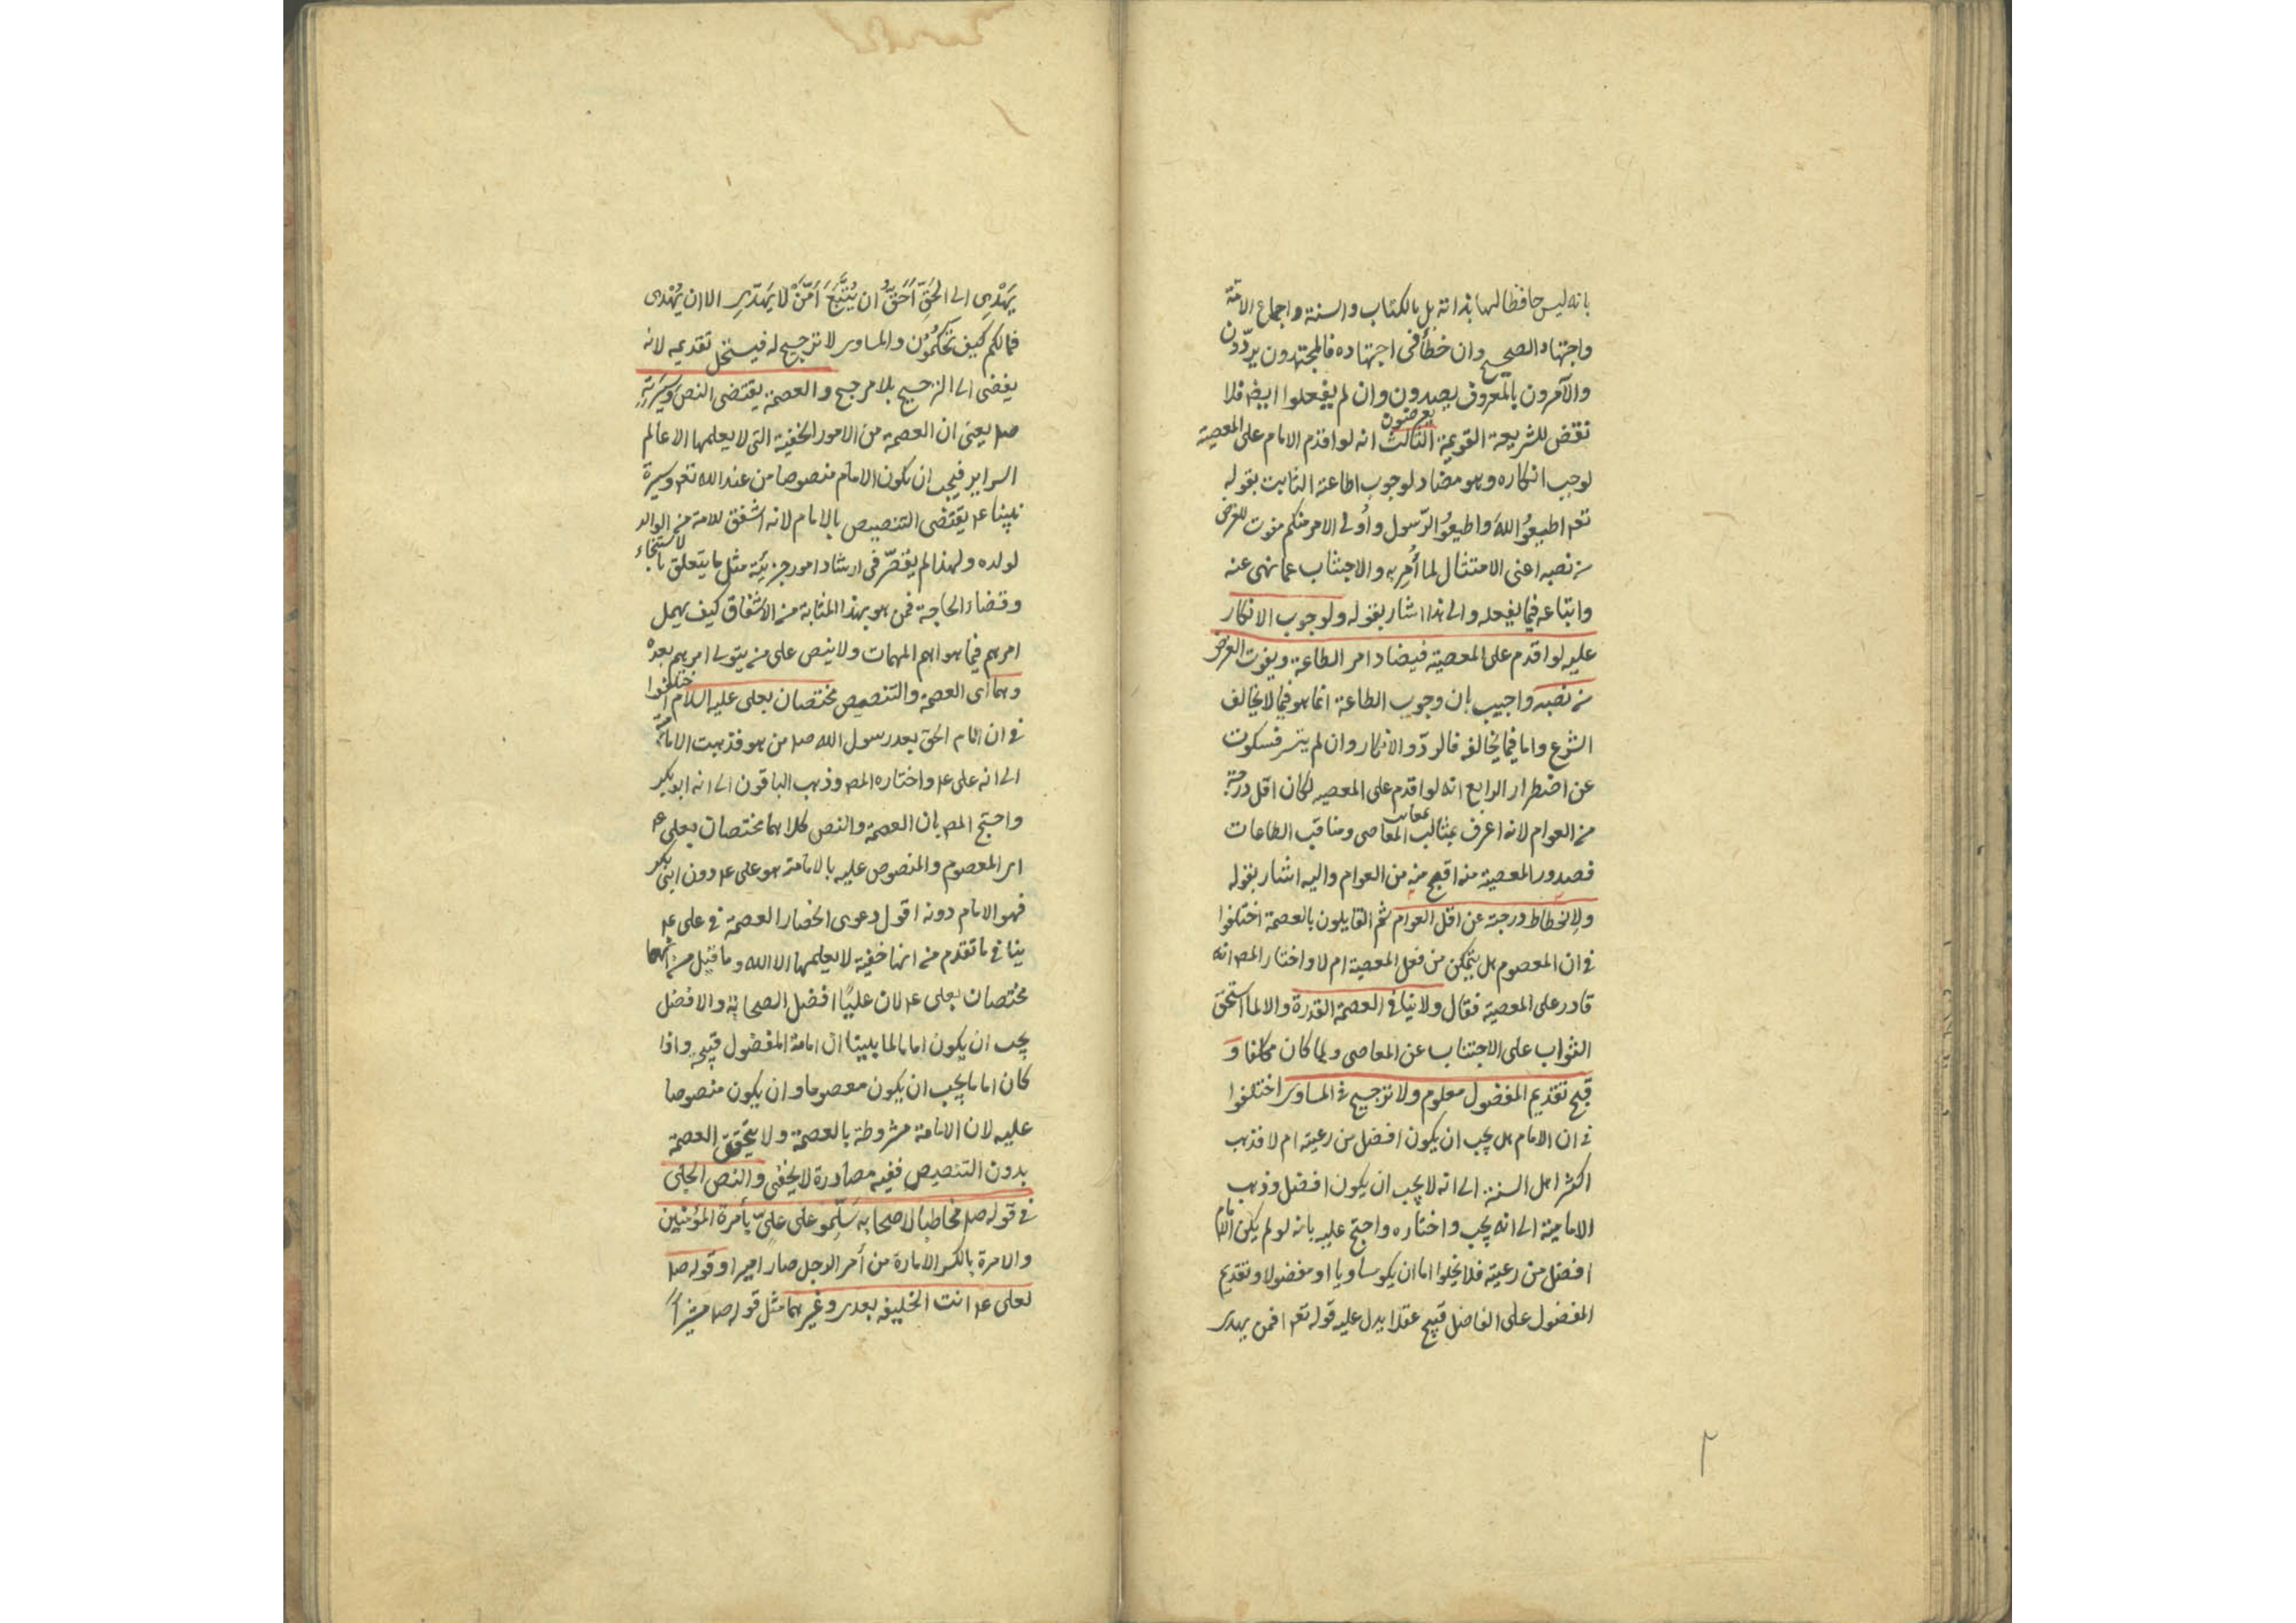 بانه ليس حافظا لها بذاته بل بالكتاب والسنة واجماع الامة
واجتهاد الصحيح وان خطأ فى اجتهاده فالمجتهدون يردّون
والآمرون بالمعروف يصدون وان لم يفعلوا ايضا فلا
يعرضون
نقض للشريعة القويمة الثالث انه لو اقدم الامام على المعصية
لوجب انكاره وهو مضاد لوجوب اطاعته الثابت بقوله
تعـ اطيعوُا اللهَ واطيعوُا الرّسول وأُولى الامر منكم مفوت للغرض
من نصبه اعنى الامتثال لما أُمِر به والاجتناب عما نهى عنه
واتباعه فيما يفعله والى هذا اشار بقوله ولوجوب الانكار
عليه لو اقدم على المعصية فيضاد امر الطاعة ويفوت الغرض
من نصبه واجيب بان وجوب الطاعة انما هو فيما لا يخالف
الشرع واما فيما يخالفه فالردّ والانكار وان لم يتيسر فسكوت
عن اضطرار الرابع انه لو اقدم على المعصيه لكان اقل درجة
من العوام لانه اعرف بمثالب المعاصى ومناقب الطاعات
معايب
فصدور المعصية منه اقبح منه من العوام واليه اشار بقوله
ولانحطاط درجة عن اقل العوام ثم القايلون بالعصمة اختلفوا
فى ان المعصوم هل يتمكن من فعل المعصية ام لا واختار المصـ انه
قادر على المعصية فقال ولا ينافى العصمة القدرة والا لما استحق
الثواب على الاجتناب عن المعاصى ولما كان مكلفا و
قبح تقديم المفضول معلوم ولا ترجيح فى المساوى اختلفوا
فى ان الامام هل يجب ان يكون افضل من رعيته ام لا فذهب
اكثر اهل السنة الى انه لا يجب ان يكون افضل وذهب
الامامية الى انه يجب واختاره واحتج عليه بانه لو لم يكن الامام
افضل من رعيته فلا يخلوا اما ان يكو مساويا او مفضولا وتقديم
المفضول على الفاضل قبيح عقلا يدل عليه قوله تعـ افمن يهدى
٢
يَهْدِى الى الحَقِّ أَحَقُّ ان يُتَّبَعَ أمَّنْ لا يَهِدّىِ الا ان يُهْدى
فمالكم كيف تحكمُوُن والمساوى لا ترجيح له فيستحل تقديمه لانه
يفضى الى الترجيح بلا مرجح والعصمة يقتضى النص وسيَرتهِ
صلـ يعنى ان العصمة من الامور الخفية التى لا يعلمها الا عالم
السراير فيجب ان يكون الامام منصوصا من عند الله تعـ وسيرة
نبينا عـ يقتضى التنصيص بالامام لانه اشفق للامة من الوالد
لولده ولهذا لم يقصّر فى ارشاد امور جزيئة مثل ما يتعلق بالاستنجاء
وقضاء الحاجة فمن هو بهذا المثابة من الاشفاق كيف يهمل
امرهم فيما هو اهم المهمات ولا ينص على من يتولى امرهم بعده
وهما اى العصمة والتنصيص مختصان بعلى عليه السلام اختلفوا
فى ان امام الحق بعد رسول الله صلـ من هو فذهبت الامامية
الى انه على عـ واختاره المصـ وذهب الباقون الى انه ابو بكر
واحتج المصـ بان العصمة والنص كلاهما مختصان بعلى عـ
اى المعصوم والمنصوص عليه بالامامة هو على عـ دون ابى بكر
فهو الامام دونه اقول دعوى انحصار العصمة فى على عـ
ينافى ما تقدم من انها خفية لا يعلمها الا الله وما قيل من انهما
مختصان بعلى عـ لان عليًّا افضل الصحابة والافضل
يجب ان يكون اماما لما بينا ان امامة المفضول قبيح واذا
كان اماما يجب ان يكون معصوما وان يكون منصوصا
عليه لان الامامة مشروطة بالعصمة ولا يتحقق العصمة
بدون التنصيص ففيه مصادرة لا يخفى والنص الجلى
فى قوله صلـ مخاطبا لاصحابه سَلِّمو على علىّ بأمرة المؤمنين
والامرة بالكسر الامارة من أمر الرجل صار اميرا وقوله صلـ
لعلى عـ انت الخليفه بعدى وغيرهما مثل قوله صلـ مشيرا